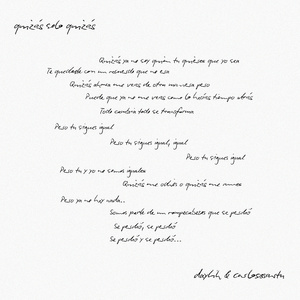 quizás solo quizás
Quizás ya no soy quien tu quieres que yo sea
Te quedaste con un recuerdo que no era
Quizás ahora me veas de otra manera pero
Puede que ya no me veas como lo hacías tiempo atrás
Todo cambia todo se transforma
Pero tu sigues igual
Pero tu sigues igual, igual
Pero tu sigues igual
Pero tu y yo no somos iguales
Quizás me odies o quizás me ames
Pero ya no hay nada..
Somos parte de un rompecabezas que se perdió
Se perdió, se perdió
Se perdió y se perdió...